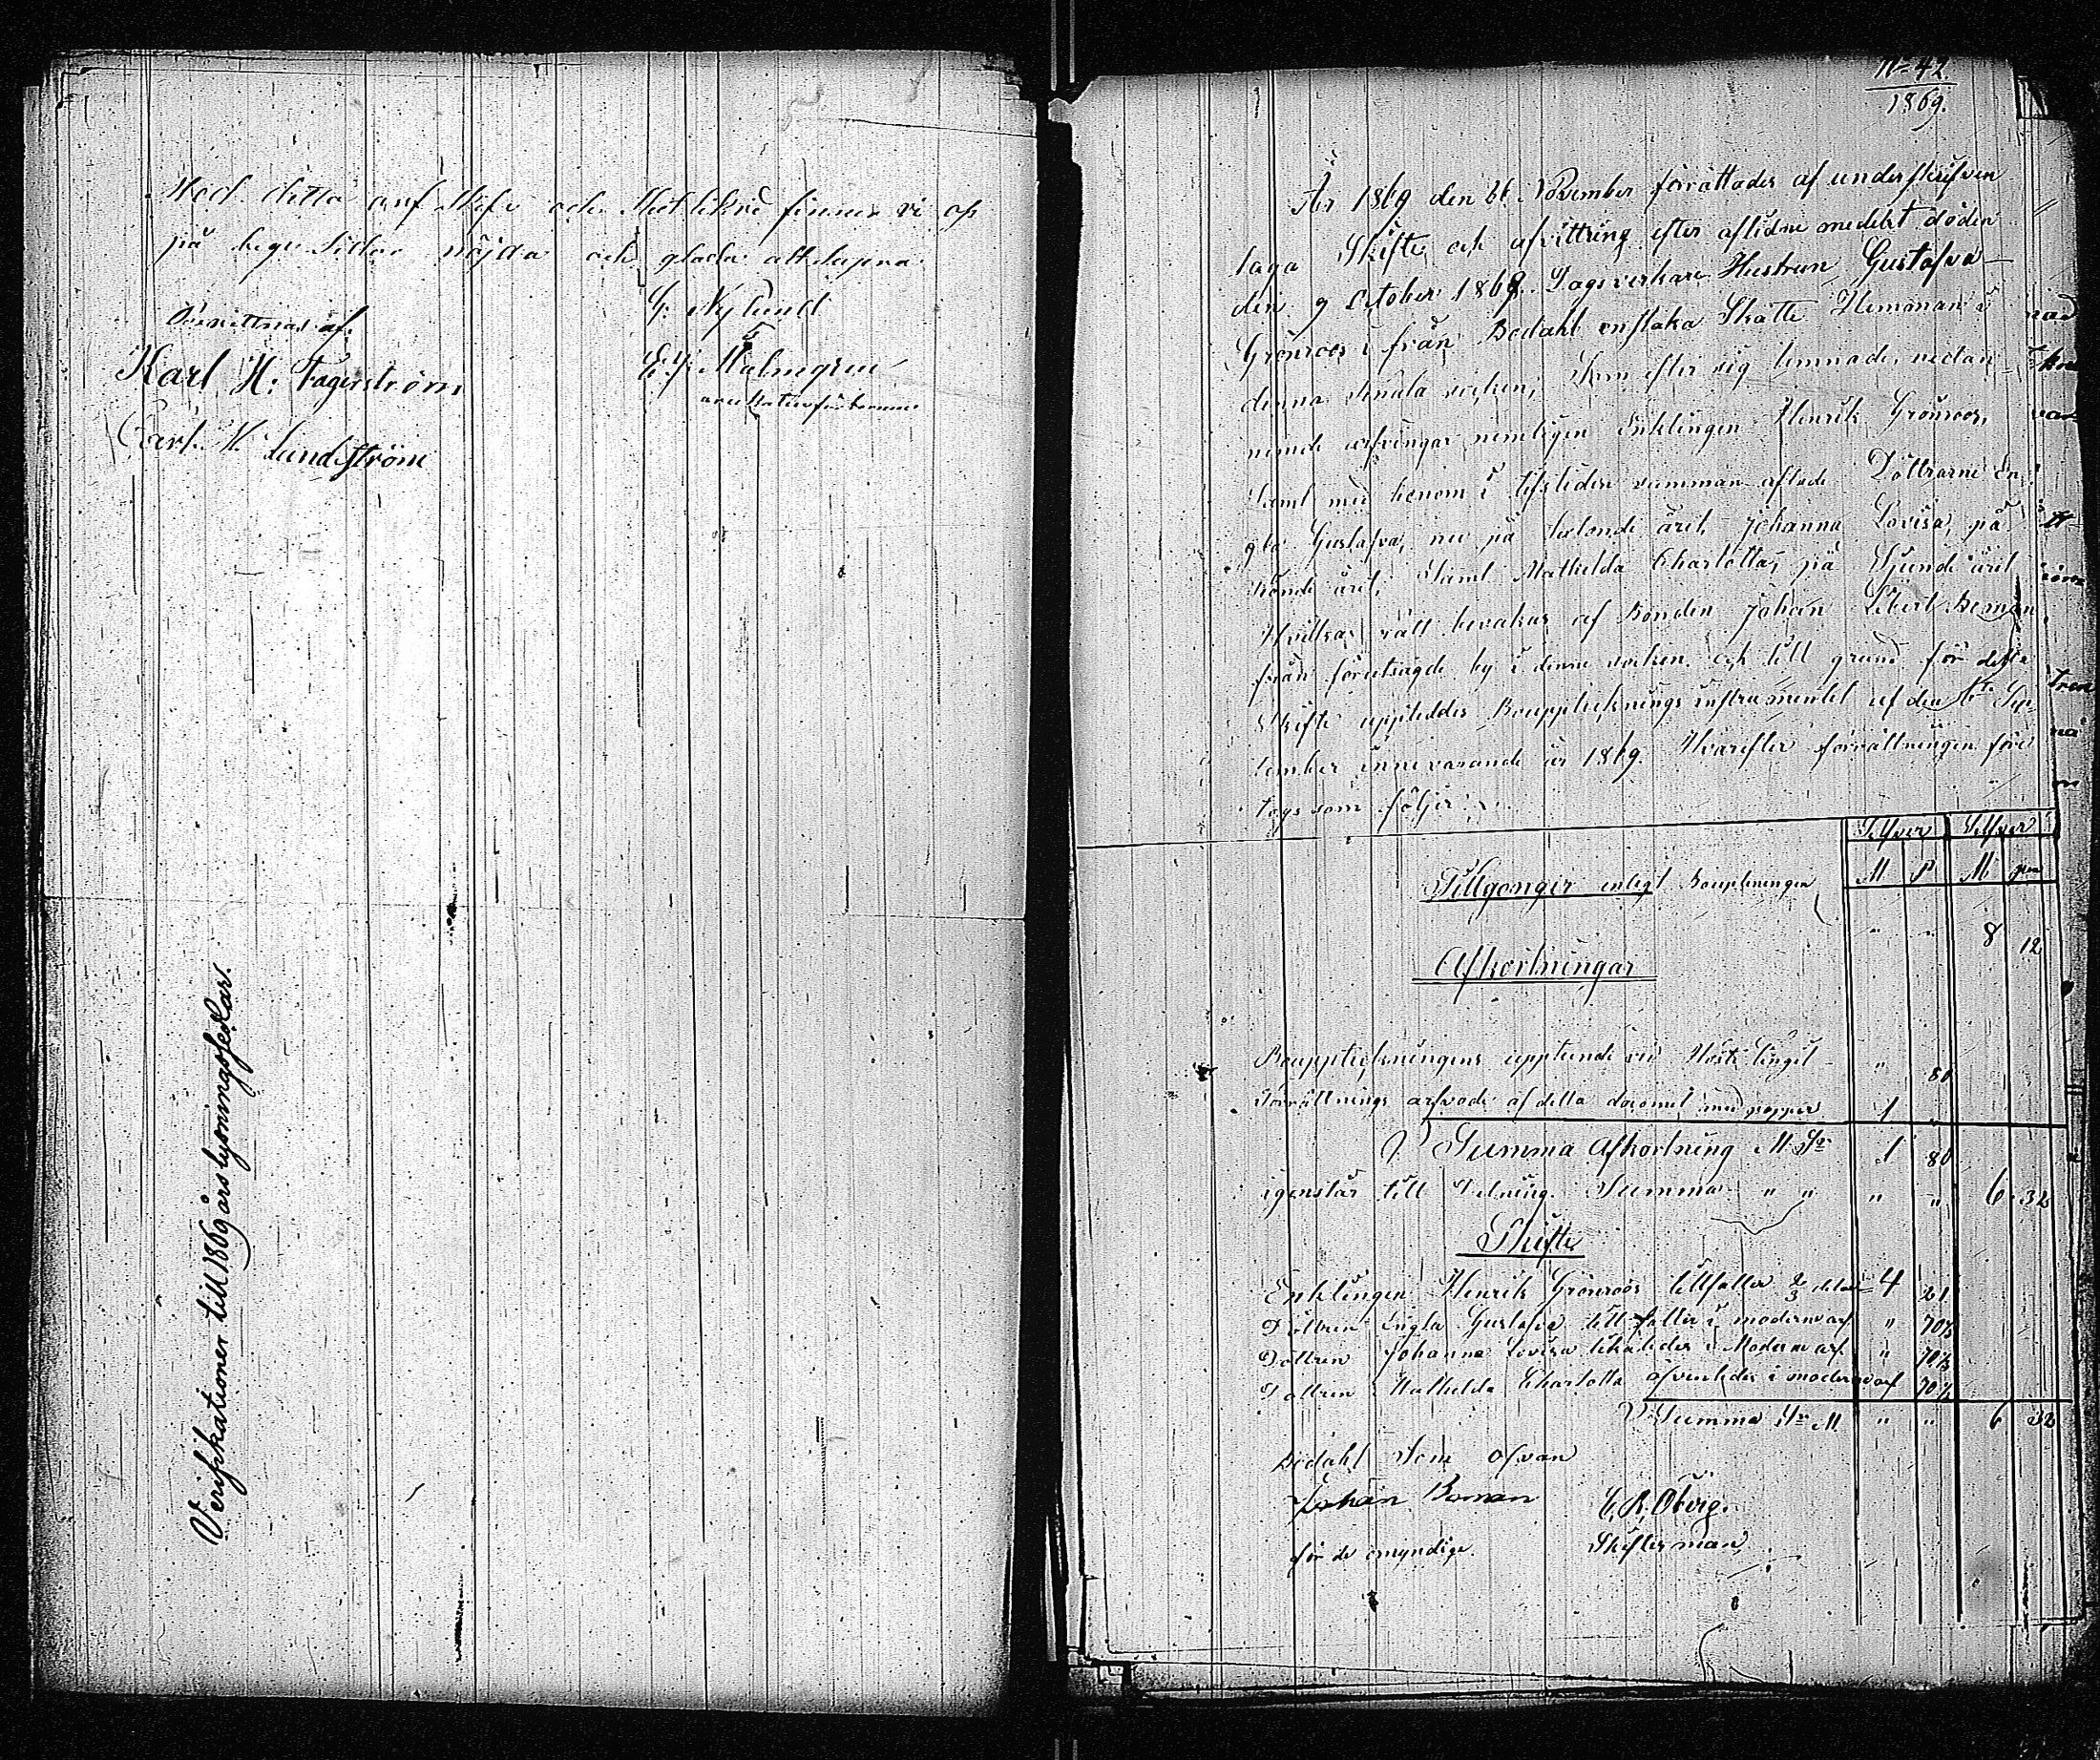 Med detta arf Skife och finner vi os
på begge Sidor nöjda och glada
G. Nylund
af
Karl H. Fagerström
E. J. Malmgren
Carl. W. Lundström
Verifikationer till 1869 års lysningssedlar.
No 42
1869.
År 1869 den 26 November förrättades af underskrifven
laga Skifte och afvittring efter aflidne medelst döden
den 9 October 1868. Dagsverkare Hustrun Gustafva
Grönroos i från Bodahl enstaka Skatte Hemman i
denna socken, Som efter sig lemnade, nedan
nemde arfvingar nemligen Enklingen Henrik Grönroos,
Samt med henom i lifstiden samman aflade Döttrarne En-
gla Gustafva, nu på året, Johanna Lovisa, på
året, Samt Mathilda Charlotta, på Sjunde året
Hvilkas rätt bevakas af Bonden Johan Boman
från förutsagde by i denne socken. och till grund för detta
Skifte uppteddes Bouppteknings instrumentet af den 6te Sep-
tember innevarande år 1869. Hvarefter förrättningen före
togs som följer:
Silfver Silfver
M P M pen
Tillgonger enligt Bouptekningen
" " 8 12
Afkortningar
Bouppteckningens vid Höste Tinget " 80
Förrättnings arfvode af detta docomet med papper 1 "
Summa Afkortning M Sr 1 80
igenstår till Delning. Summa " " " " 6 32
Skifte
Enklingen Henrik Grönroos tillfaller 2/3 4 21
Dottren Engla Gustafva till faller i modernearf " 70 1/3
Dottren Johanna Lovisa likaledes i Moderne arf " 70 1/3
Dottren Mathilda Charlotta äfvenledes i modernearf " 70 1/3
Summa Sr M " " 6 32
Bodahl Som ofvan
Johan Boman
C. R. Öberg.
för de omyndige.
Skiftesman